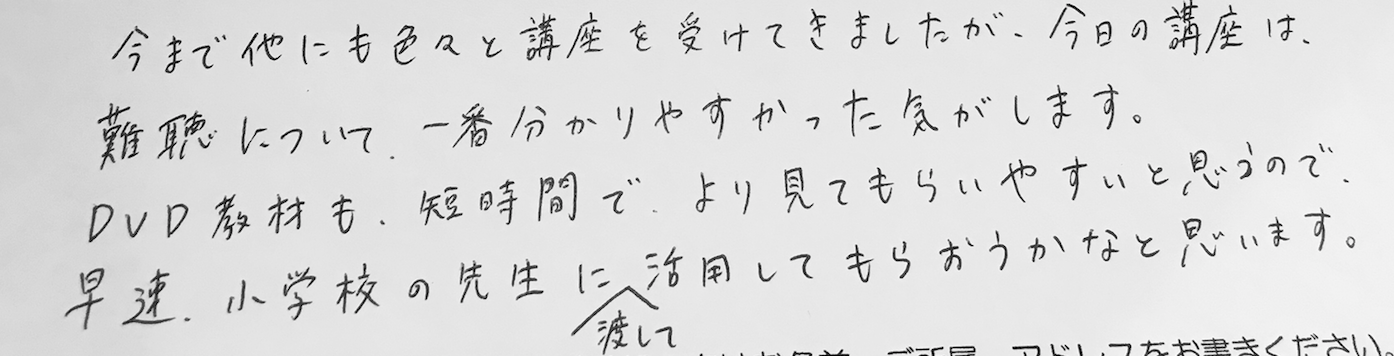 今まで他にも色々と講座を受けてきましたが、今日の講座は、
難聴について、一番分かりやすかった気がします。
DVD教材も、短時間で、より見てもらいやすいと思うので、
早速、小学校の先生に活用してもらおうかなと思います。
渡して
ご所属、アドレスをお書きください